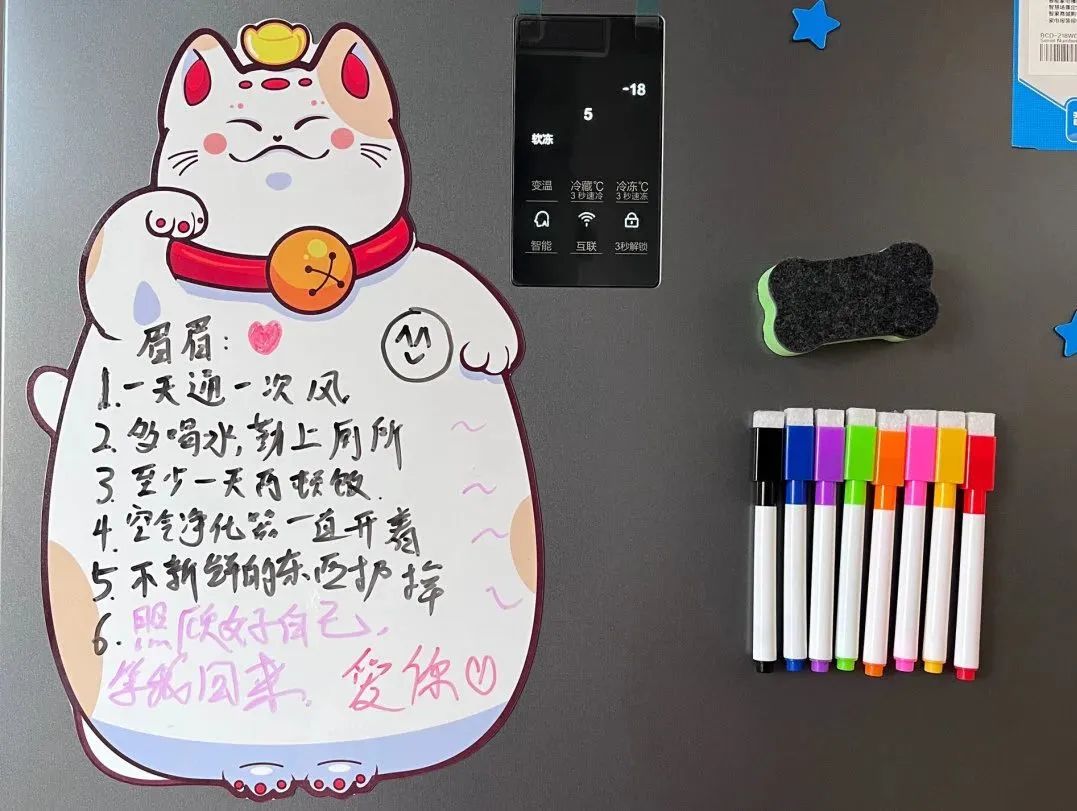 眉眉：
1. 一天通一次风
2. 多喝水，勤上厕所
3. 至少一天两顿饭.
4. 空气净化器一直开着
5. 不新鲜的东西扔掉
6. 照顾好自己，
等我回来.
爱你
-18
5
软冻
变温 冷藏℃ 冷冻℃
3秒速冷 3秒速冻
智能 互联 3秒解锁
BCD-218WD
Serial Number